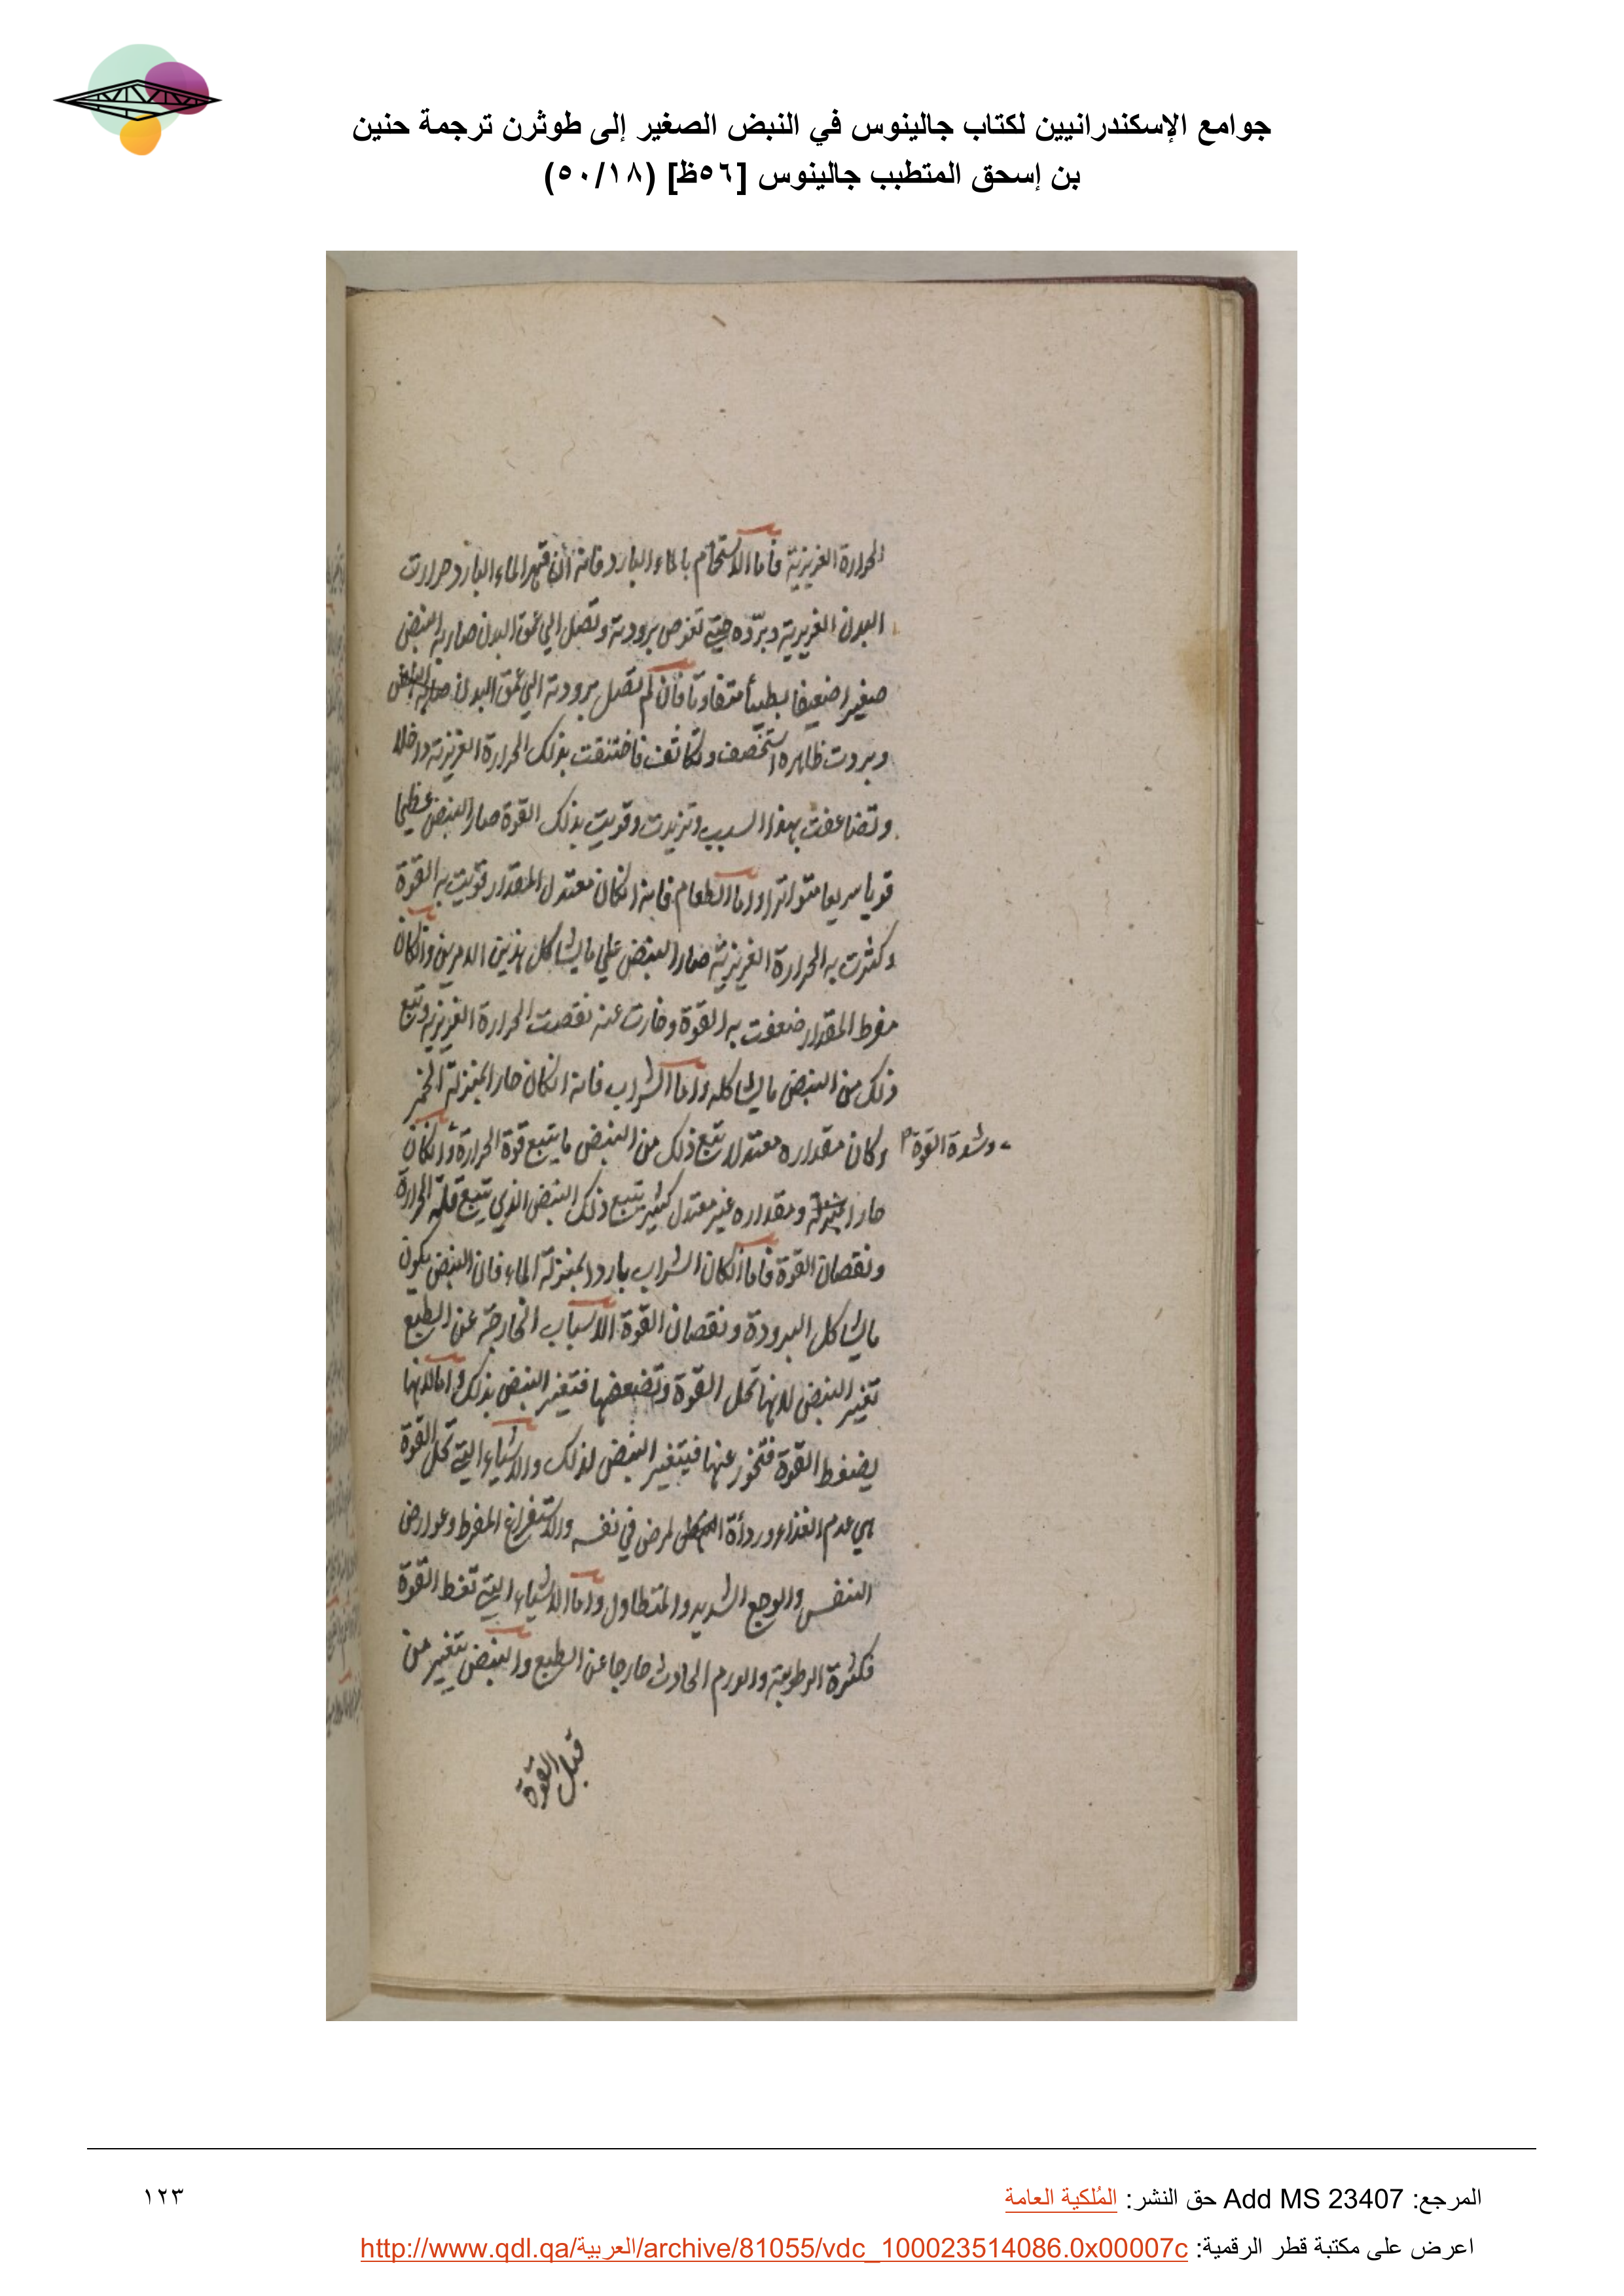 جوامع الإسكندرانيين لكتاب جالينوس في النبض الصغير إلى طوثرن ترجمة حنين
بن إسحق المتطبب جالينوس [٥٦ظ] (٥٠/١٨)
الحرارة الغريزية فأما الاستحمام بالماء البارد فانه ان قهر الماء البارد حرارت
البدن الغريزية وبرّده حتي تغوص برودته وتصل الي عمق البدن صار به النبض
صغيرا ضعيفا بطيئا متفاوتا فان لم تصل برودته الي عمق البدن
وبردت ظاهره استخصف وتكاثف فاختنقت بذلك الحرارة الغريزية داخلا
وتضاعفت بهذا السبب وتزيدت وقويت بذلك القوة صار النبض عظيما
قويا سريعا متواترا واما الطعام فانه انكان معتدل المقدار قويت به القوة
وكثرت به الحرارة الغريزية صار النبض علي ما يشاكل هذين الامرين وانكان
مفرط المقدار ضعفت به القوة وخارت عنه نقصت الحرارة الغريزية وتبع
ذلك من النبض ما يشاكله واما الشراب فانه انكان حارا بمنزلة الخمر
وكان مقداره معتدلا تبع ذلك من النبض ما يتبع قوة الحرارة وانكان
وشدة القوة
حارا ومقداره غير معتدل كثير يتبع ذلك النبض الذي يتبع قلة الحرارة
ونقصان القوة فاما انكان الشراب باردا بمنزلة الماء فان النبض يكون
ما يشاكل البرودة ونقصان القوة الاسباب الخارجة عن الطبع
تغير النبض لانها تحل القوة وتضعفها فتغير النبض بذلك واما لانها
يضغط القوة فتخور عنها فيتغير النبض لذلك والاشياء التي تحل القوة
هي عدم الغذاء ورداة المرض في نفسه والاستفراغ المفرط وعوارض
النفس والوجع الشديد والمتطاول واما الاشياء التي تغط القوة
فكثرة الرطوبة والورم الحادث خارجا عن الطبع والنبض يتغير من
قبل القوة
المرجع: Add MS 23407 حق النشر: المُلكية العامة
١٢٣
اعرض على مكتبة قطر الرقمية: http://www.qdl.qa/العربية/archive/81055/vdc_100023514086.0x00007c